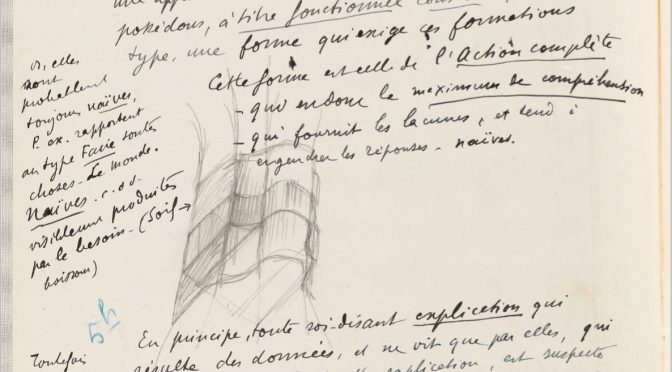 une
pokédons, à titre fonctionnel
type, une forme qui exige ces formations
Cette forme est celle de l'Action complète
- qui en donne le maximum de compréhension
- qui fournit les lacunes, et tend à
engendrer les réponses - naïves.
or, elles
sont
probablement
toujours naïves,
P. ex. rapportent
au type Faire toutes
choses - Le monde.
Naïves - c.à.d.
visiblement produites
par le besoin - (Soif →
boisson)
5h
En principe, toute soi-disant explication qui
résulte des données, et ne vit que par elles, qui
explication, est suspecte
Toutefois